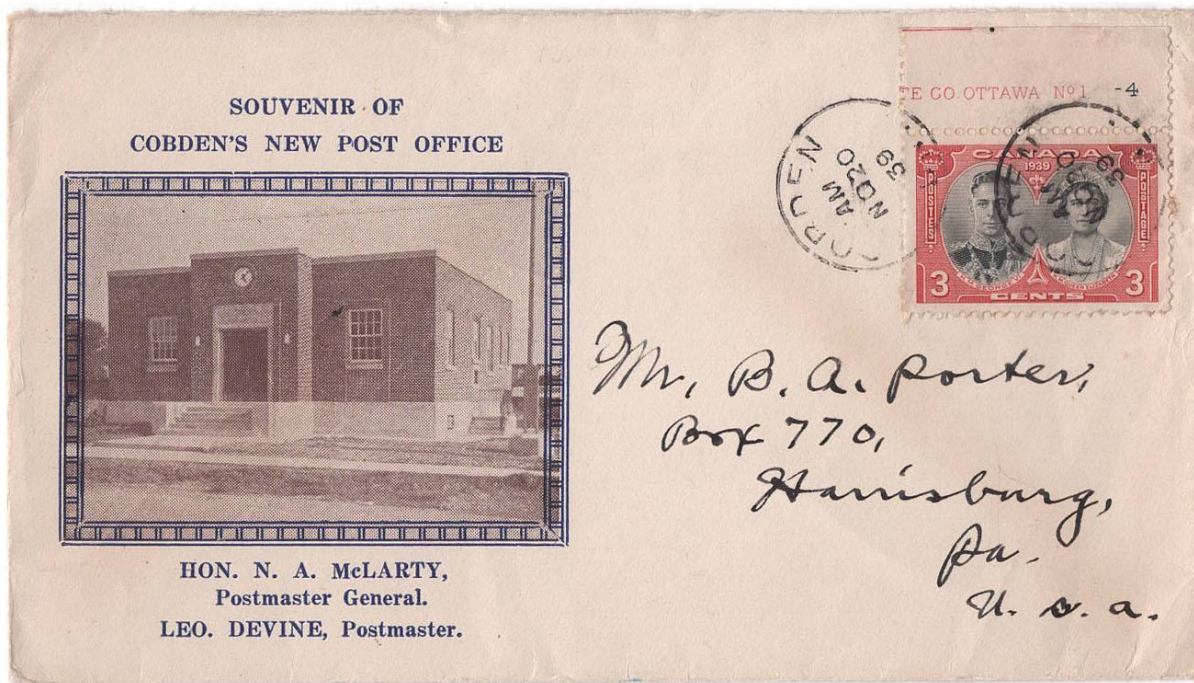 SOUVENIR OF
COBDEN'S NEW POST OFFICE
HON. N. A. McLARTY,
Postmaster General.
LEO. DEVINE, Postmaster.
TE CO. OTTAWA Nº 1 -4
COBDEN
AM
NO 20
39
CANADA
1939
POSTES
POSTAGE
3 CENTS 3
Mr. B. A. Porter,
Box 770,
Harrisburg,
Pa.
U. S. A.